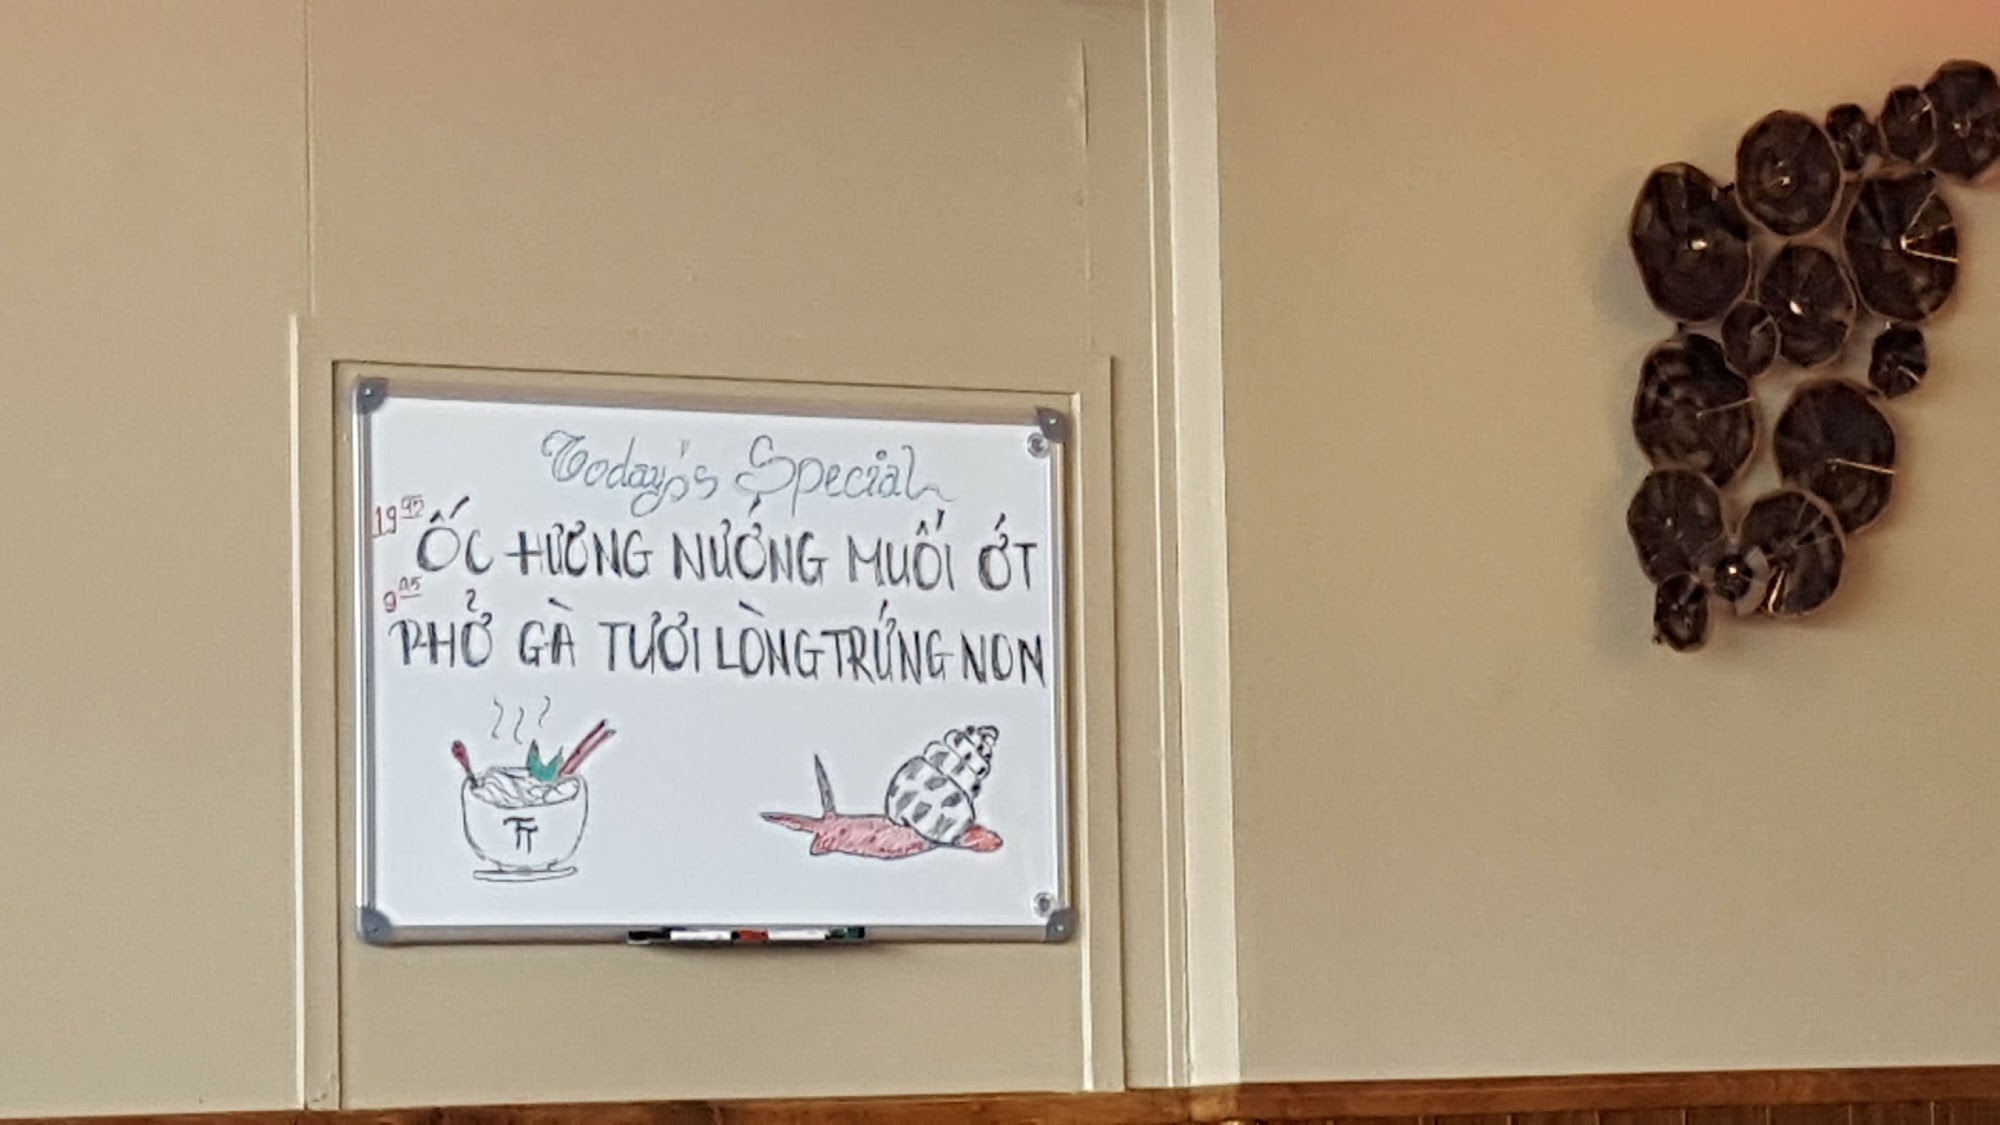 Today's Special
19 95
ỐC HƯƠNG NƯỚNG MUỐI ỚT
9 95
PHỞ GÀ TƯƠI LÒNG TRỨNG NON
TT